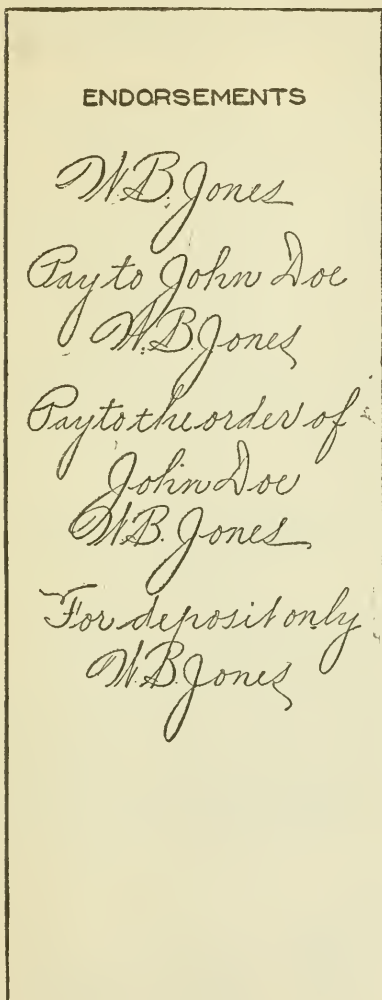 ENDORSEMENTS
W.B. Jones
Pay to John Doe
W.B. Jones
Pay to the order of
John Doe
W.B. Jones
For deposit only
W.B. Jones